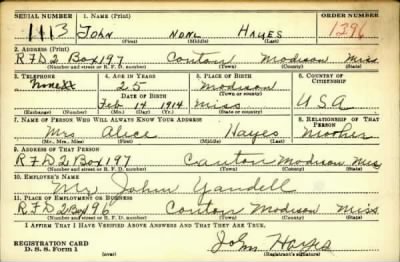 SERIAL NUMBER 1. NAME (Print) ORDER NUMBER
1113 JOHN NONE HAYES 1396
(First) (Middle) (Last)
2. ADDRESS (Print)
RFD 2 Box 197 Canton Madison Miss.
(Number and street or R. F. D. number) (Town) (County) (State)
3. TELEPHONE 4. AGE IN YEARS 5. PLACE OF BIRTH 6. COUNTRY OF CITIZENSHIP
None 25 Madison
DATE OF BIRTH (Town or county)
Feb 14 1914 Miss USA
(Exchange) (Number) (Mo.) (Day) (Yr.) (State or country)
7. NAME OF PERSON WHO WILL ALWAYS KNOW YOUR ADDRESS 8. RELATIONSHIP OF THAT PERSON
Mrs Alice Hayes Mother
(Mr., Mrs., Miss) (First) (Middle) (Last)
9. ADDRESS OF THAT PERSON
RFD 2 Box 197 Canton Madison Miss
(Number and street or R. F. D. number) (Town) (County) (State)
10. EMPLOYER'S NAME
Mr John Yandell
11. PLACE OF EMPLOYMENT OR BUSINESS
RFD 2 Box 96 Canton Madison Miss
(Number and street or R. F. D. number) (Town) (County) (State)
I AFFIRM THAT I HAVE VERIFIED ABOVE ANSWERS AND THAT THEY ARE TRUE.
REGISTRATION CARD John Hayes
D. S. S. Form 1 (over) (Registrant's signature)